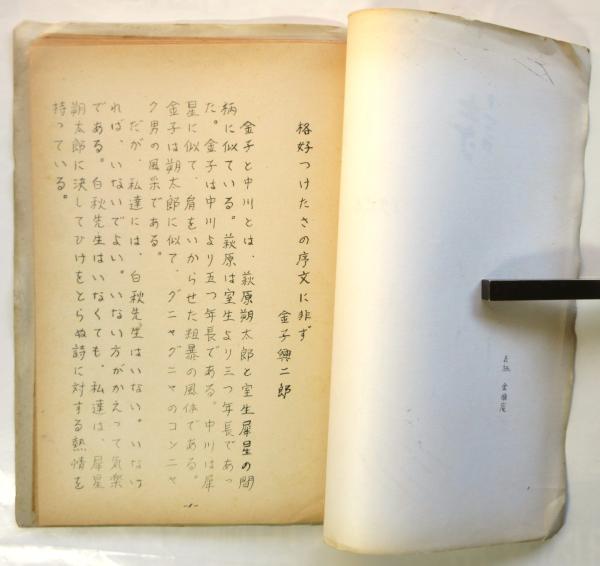 表紙 金雅庵
格好つけたさの序文に非ず
金子興二郎
金子と中川とは、萩原朔太郎と室生犀星の間
柄に似ている。萩原は室生より三つ年長であっ
た。金子は中川より五つ年長である。中川は犀
星に似て、肩をいからせた粗暴の風体である。
金子は朔太郎に似て、グニャグニャのコンニャ
ク男の風采である。
だが、私達には、白秋先生はいない。いなけ
れば、いないでよい。いない方がかえって気楽
である。白秋先生はいなくても、私達は、犀星
朔太郎に決してひけをとらぬ詩に対する熱情を
持っている。
-1-